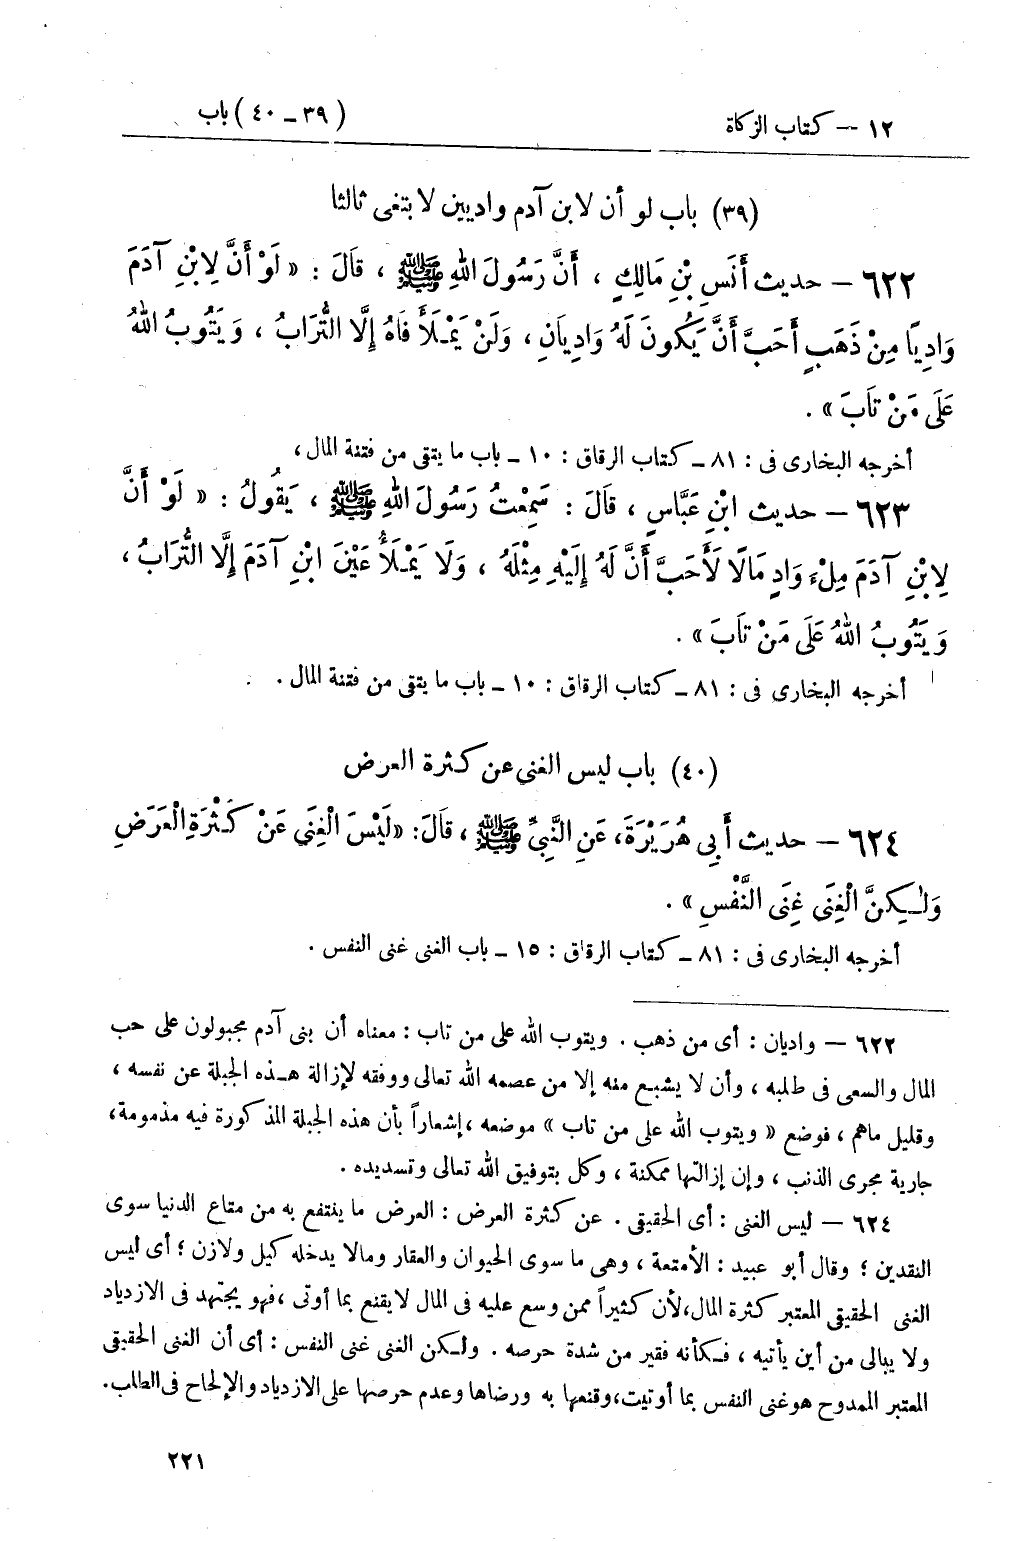 ١٢ – كتاب الزكاة
(٣٩ – ٤٠) باب
(٣٩) باب لو أن لابن آدم واديين لابتغى ثالثا
٦٢٢ – حديث أَنَسِ بْنِ مَالِكٍ ، أَنَّ رَسُولَ اللهِ ﷺ ، قَالَ : « لَوْ أَنَّ لِابْنِ آدَمَ
وَادِيًا مِنْ ذَهَبٍ أَحَبَّ أَنَّ يَكُونَ لَهُ وَادِيَانِ ، وَلَنْ يَمْلَأَ فَاهُ إِلَّا التُّرَابُ ، وَيَتُوبُ اللهُ
عَلَى مَنْ تَابَ » .
أخرجه البخارى فى : ٨١ – كتاب الرقاق : ١٠ – باب ما يتقى من فتنة المال ،
٦٢٣ – حديث ابْنِ عَبَّاسٍ ، قَالَ : سَمِعْتُ رَسُولَ اللهِ ﷺ ، يَقُولُ : « لَوْ أَنَّ
لِابْنِ آدَمَ مِلْءَ وَادٍ مَالًا لَأَحَبَّ أَنَّ لَهُ إِلَيْهِ مِثْلَهُ ، وَلَا يَمْلَأُ عَيْنَ ابْنِ آدَمَ إِلَّا التُّرَابُ ،
وَيَتُوبُ اللهُ عَلَى مَنْ تَابَ » .
أخرجه البخارى فى : ٨١ – كتاب الرقاق : ١٠ – باب ما يتقى من فتنة المال .
(٤٠) باب ليس الغنى عن كثرة العرض
٦٢٤ – حديث أَبِي هُرَيْرَةَ، عَنِ النَّبِيِّ ﷺ ، قَالَ: «لَيْسَ الْغِنَى عَنْ كَثْرَةِ الْعَرَضِ
وَلٰكِنَّ الْغِنَى غِنَى النَّفْسِ » .
أخرجه البخارى فى : ٨١ – كتاب الرقاق : ١٥ – باب الغنى غنى النفس .
٦٢٢ – واديان : أى من ذهب . ويتوب الله على من تاب : معناه أن بنى آدم مجبولون على حب
المال والسعى فى طلبه ، وأن لا يشبع منه إلا من عصمه الله تعالى ووفقه لإزالة هذه الجبلة عن نفسه ،
وقليل ماهم ، فوضع « ويتوب الله على من تاب » موضعه ، إشعاراً بأن هذه الجبلة المذكورة فيه مذمومة،
جارية مجرى الذنب ، وإن إزالتها ممكنة ، وكل بتوفيق الله تعالى وتسديده .
٦٢٤ – ليس الغنى : أى الحقيقى . عن كثرة العرض : العرض ما ينتفع به من متاع الدنيا سوى
النقدين ؛ وقال أبو عبيد : الأمتعة ، وهى ما سوى الحيوان والعقار ومالا يدخله كيل ولا وزن ؛ أى ليس
الغنى الحقيقى المعتبر كثرة المال، لأن كثيراً ممن وسع عليه فى المال لا يقنع بما أوتى ، فهو يجتهد فى الازدياد
ولا يبالى من أين يأتيه ، فكأنه فقير من شدة حرصه . ولكن الغنى غنى النفس : أى أن الغنى الحقيقى
المعتبر الممدوح هو غنى النفس بما أوتيت، وقنعها به ورضاها وعدم حرصها على الازدياد والإلحاح فى الطلب.
٢٢١